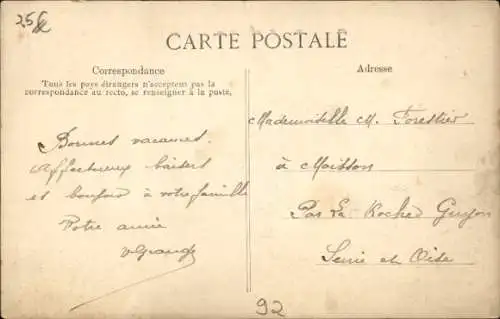 25f
CARTE POSTALE
Correspondance
Tous les pays étrangers n'acceptent pas la
correspondance au recto, se renseigner à la poste.
Adresse
Bonnes vacances.
Affectueux baisers
et bonjour à votre famille
Votre amie
Mademoiselle M. Forestier
à Moisson
Par La Roche Guyon
Seine et Oise
92